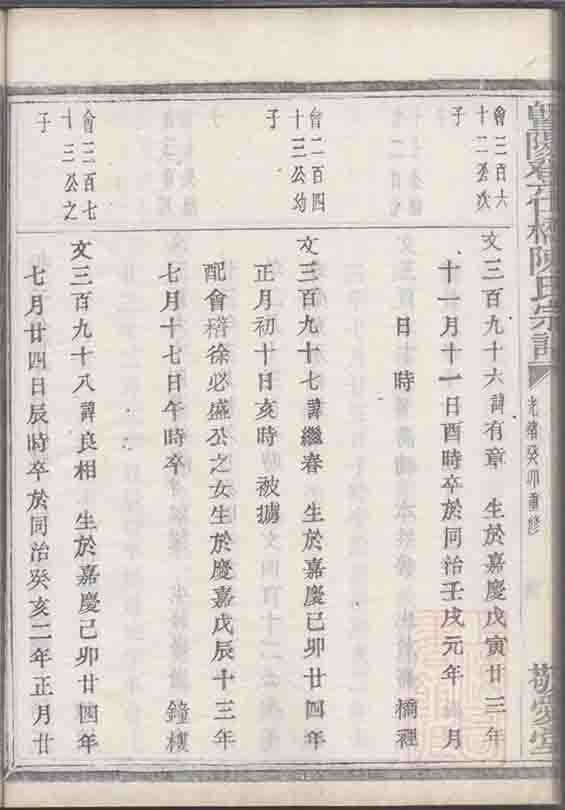 陳氏宗譜
光緒癸卯重修
敬愛堂
會三百六
十二公次
子
文三百九十六諱有章 生於嘉慶戊寅廿三年
十一月十一日酉時卒於同治壬戌元年 月
日 時 橋裡
會二百四
十三公幼
子
文三百九十七諱繼春 生於嘉慶己卯廿四年
正月初十日亥時 被擄
配會稽徐必盛公之女生於慶嘉戊辰十三年
七月十七日午時卒 鐘樓
會三百七
十三公之
子
文三百九十八諱良相 生於嘉慶己卯廿四年
七月廿四日辰時卒於同治癸亥二年正月廿